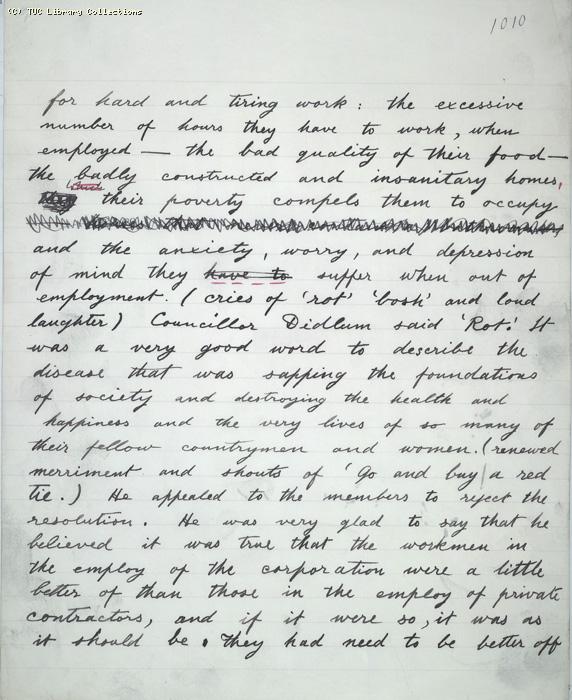 (C) TUC Library Collections
1010
for hard and tiring work: the excessive
number of hours they have to work, when
employed — the bad quality of their food —
the badly constructed and insanitary homes,
their poverty compels them to occupy
and the anxiety, worry, and depression
of mind they have to suffer when out of
employment. (cries of 'rot' 'bosh' and loud
laughter) Councillor Didlum said 'Rot.' It
was a very good word to describe the
disease that was sapping the foundations
of society and destroying the health and
happiness and the very lives of so many of
their fellow countrymen and women. (renewed
merriment and shouts of 'Go and buy a red
tie.) He appealed to the members to reject the
resolution. He was very glad to say that he
believed it was true that the workmen in
the employ of the corporation were a little
better of than those in the employ of private
contractors, and if it were so, it was as
it should be. They had need to be better off